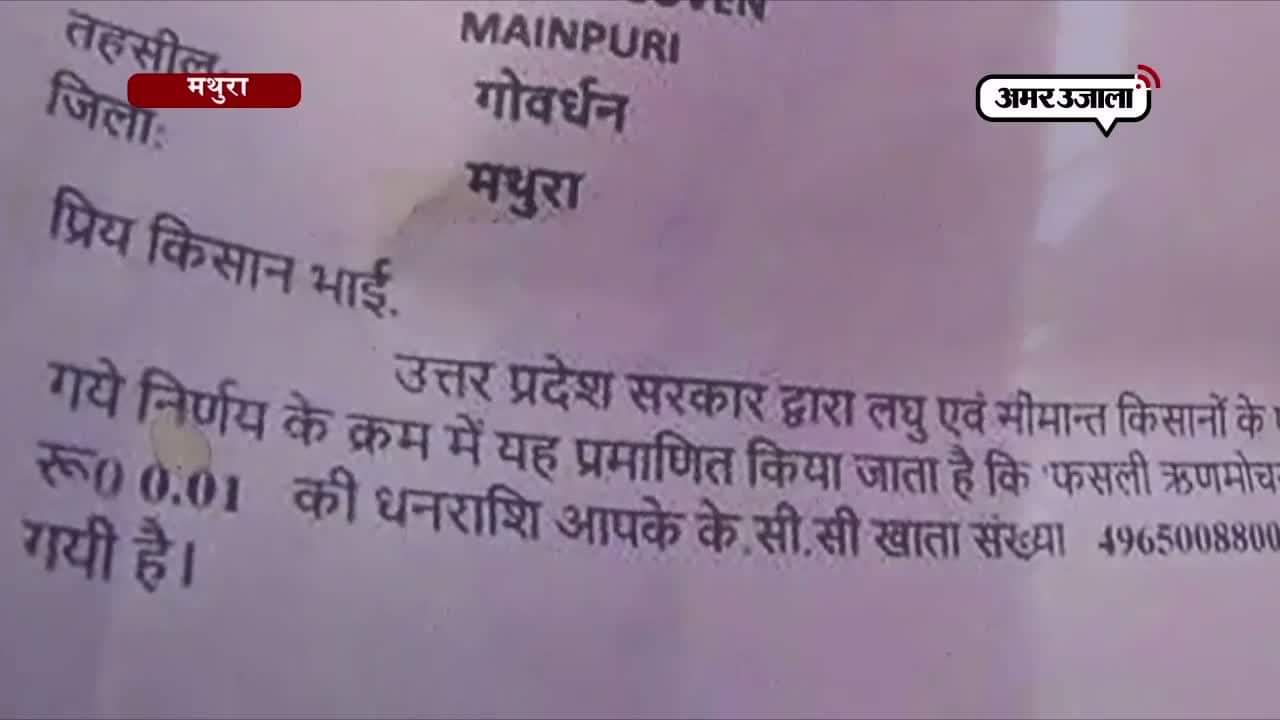 MAINPURI
तहसील
मथुरा
गोवर्धन
अमर उजाला
जिलाः
मथुरा
प्रिय किसान भाई.
उत्तर प्रदेश सरकार द्वारा लघु एवं सीमान्त किसानों के
गये निर्णय के क्रम में यह प्रमाणित किया जाता है कि 'फसली ऋणमोच
रू0 0.01 की धनराशि आपके के.सी.सी खाता संख्या 4965008800
गयी है।